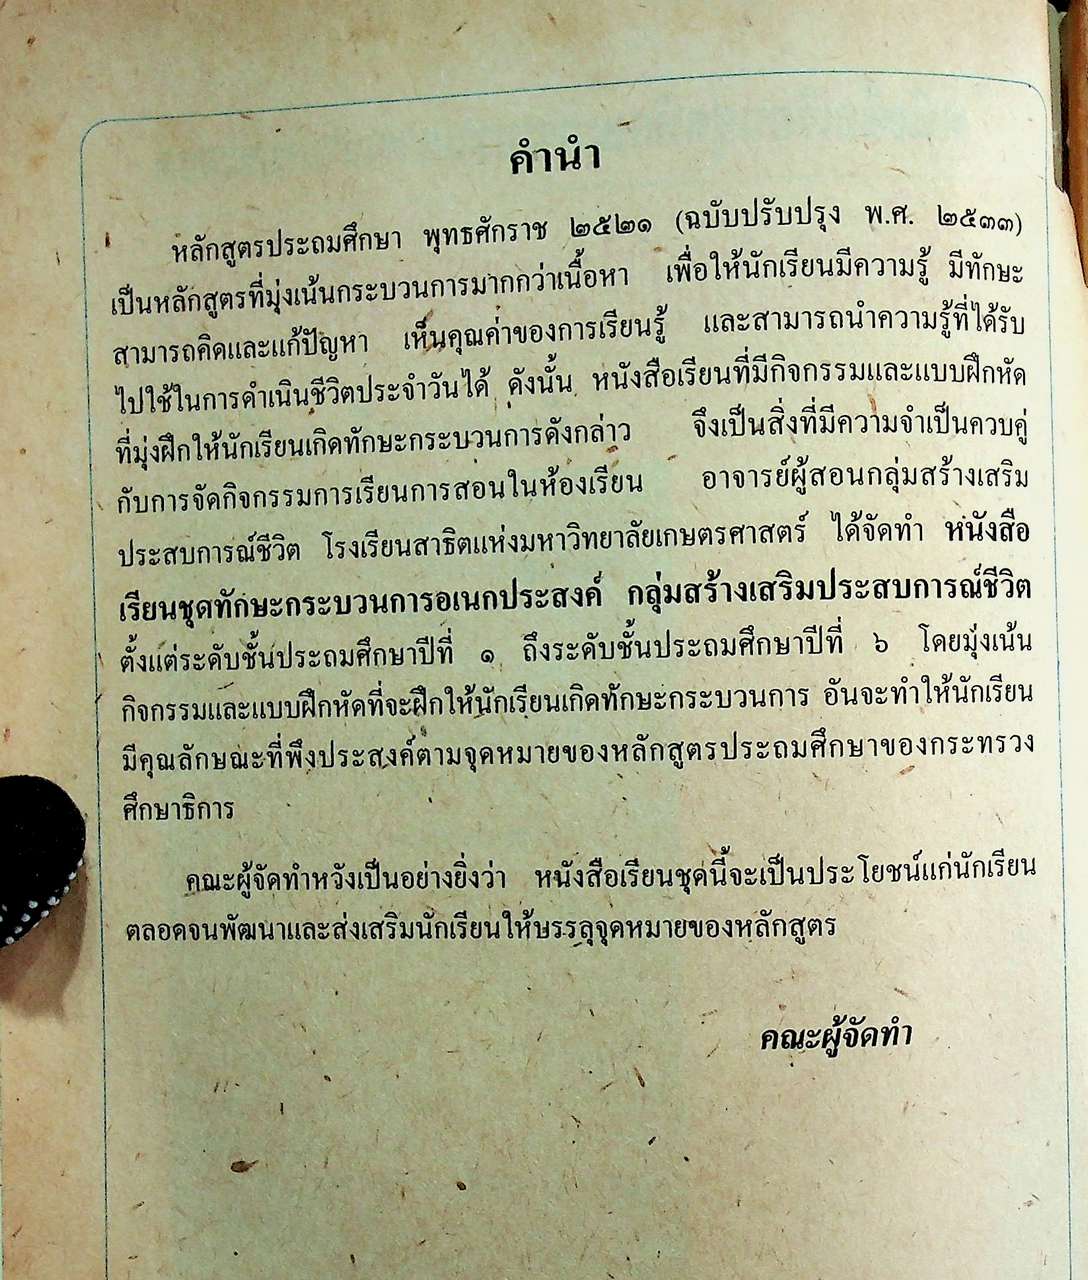 คำนำ
หลักสูตรประถมศึกษา พุทธศักราช ๒๕๒๑ (ฉบับปรับปรุง พ.ศ. ๒๕๓๓)
เป็นหลักสูตรที่มุ่งเน้นกระบวนการมากกว่าเนื้อหา เพื่อให้นักเรียนมีความรู้ มีทักษะ
สามารถคิดและแก้ปัญหา เห็นคุณค่าของการเรียนรู้ และสามารถนำความรู้ที่ได้รับ
ไปใช้ในการดำเนินชีวิตประจำวันได้ ดังนั้น หนังสือเรียนที่มีกิจกรรมและแบบฝึกหัด
ที่มุ่งฝึกให้นักเรียนเกิดทักษะกระบวนการดังกล่าว จึงเป็นสิ่งที่มีความจำเป็นควบคู่
กับการจัดกิจกรรมการเรียนการสอนในห้องเรียน อาจารย์ผู้สอนกลุ่มสร้างเสริม
ประสบการณ์ชีวิต โรงเรียนสาธิตแห่งมหาวิทยาลัยเกษตรศาสตร์ ได้จัดทำ หนังสือ
เรียนชุดทักษะกระบวนการอเนกประสงค์ กลุ่มสร้างเสริมประสบการณ์ชีวิต
ตั้งแต่ระดับชั้นประถมศึกษาปีที่ ๑ ถึงระดับชั้นประถมศึกษาปีที่ ๖ โดยมุ่งเน้น
กิจกรรมและแบบฝึกหัดที่จะฝึกให้นักเรียนเกิดทักษะกระบวนการ อันจะทำให้นักเรียน
มีคุณลักษณะที่พึงประสงค์ตามจุดหมายของหลักสูตรประถมศึกษาของกระทรวง
ศึกษาธิการ
คณะผู้จัดทำหวังเป็นอย่างยิ่งว่า หนังสือเรียนชุดนี้จะเป็นประโยชน์แก่นักเรียน
ตลอดจนพัฒนาและส่งเสริมนักเรียนให้บรรลุจุดหมายของหลักสูตร
คณะผู้จัดทำ